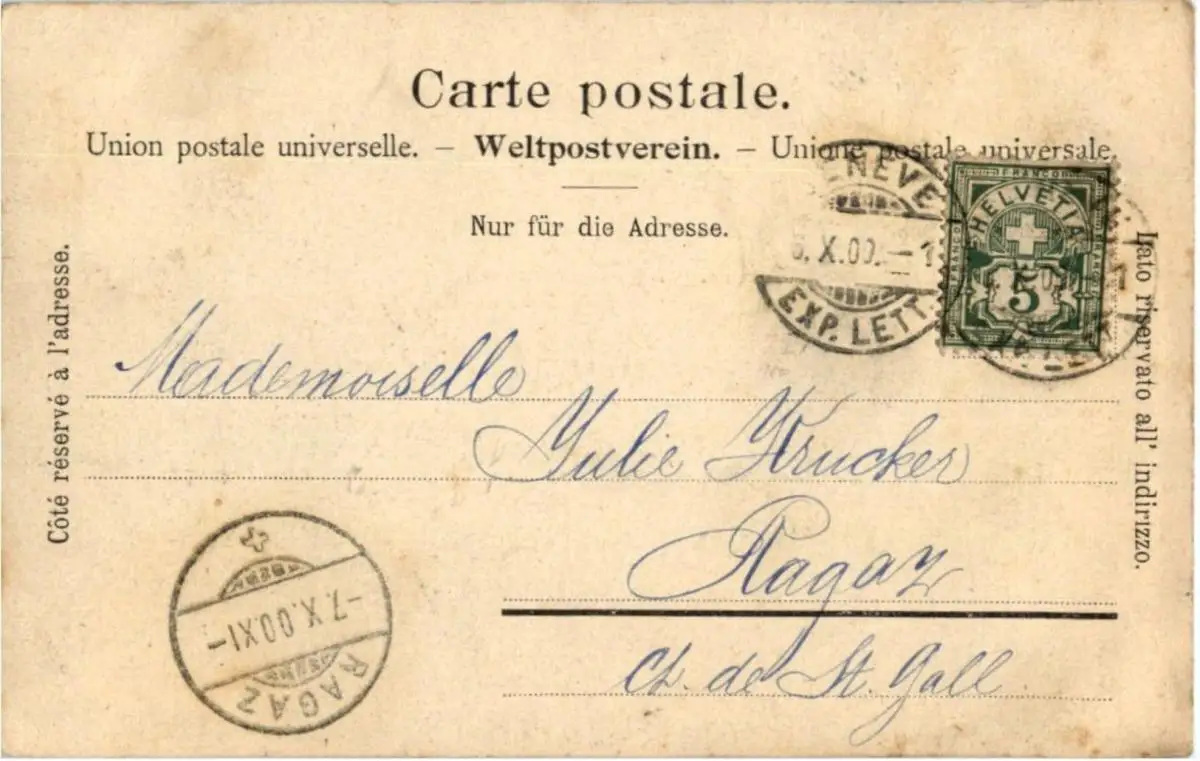 Carte postale.
Union postale universelle. — Weltpostverein. — Unione postale universale.
Nur für die Adresse.
Côté réservé à l'adresse.
lato riservato all' indirizzo.
HELVETIA
FRANCO
FRANCO
5
EXP. LETT.
X.00.
Mademoiselle
Julie Krucker
Ragaz
Ct. de St. Gall.
-7.X.00.XI-
RAGAZ